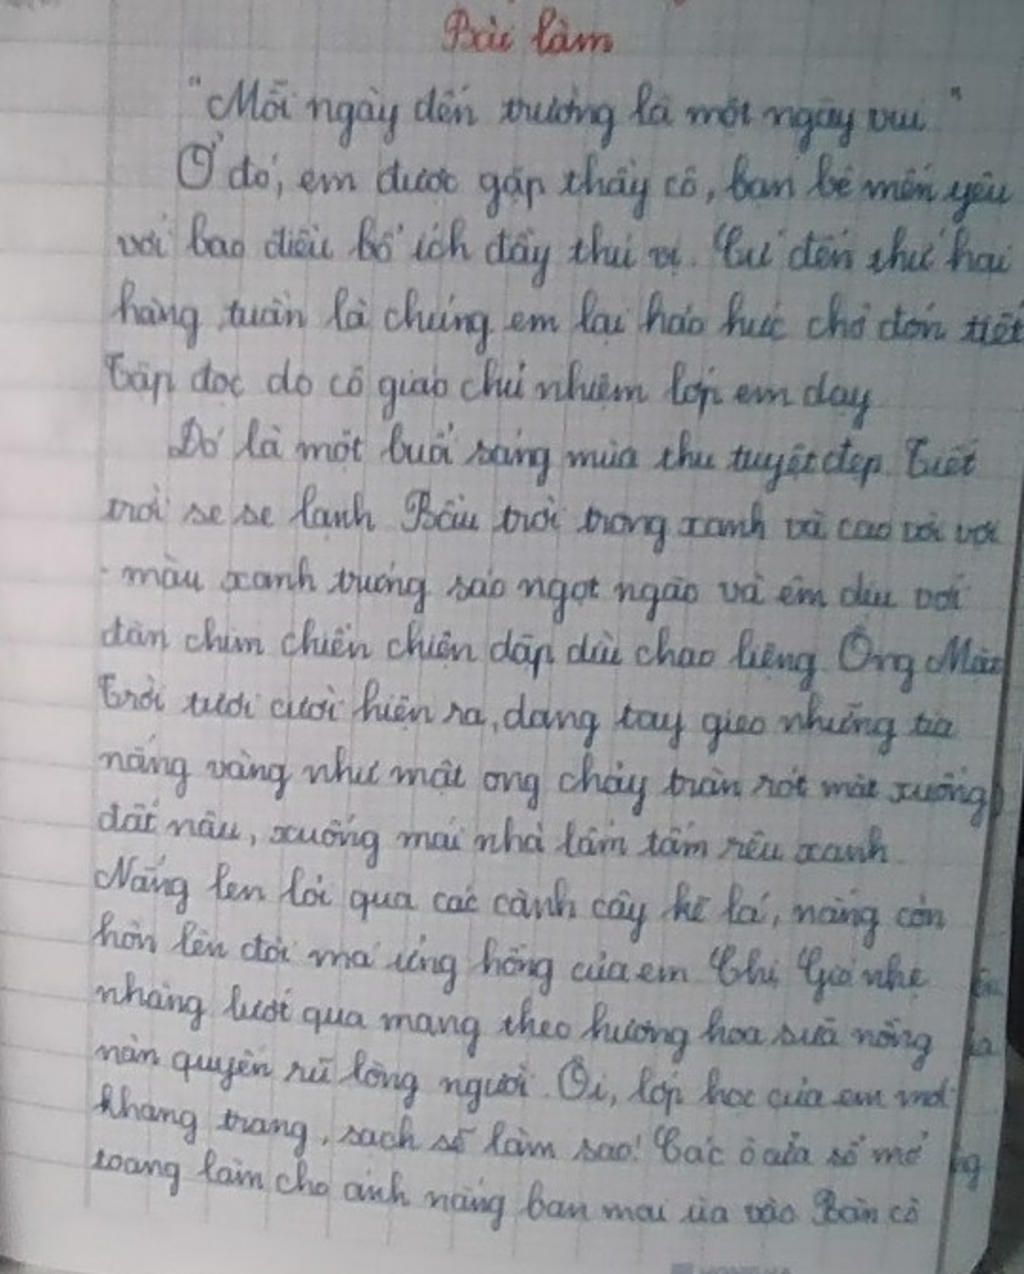 Bài làm
"Mỗi ngày đến trường là một ngày vui"
Ở đó, em được gặp thầy cô, bạn bè mến yêu
với bao điều bổ ích đầy thú vị. Cứ đến thứ hai
hàng tuần là chúng em lại háo hức chờ đón tiết
Tập đọc do cô giáo chủ nhiệm lớp em dạy
Đó là một buổi sáng mùa thu tuyệt đẹp. Tiết
trời se se lạnh Bầu trời trong xanh và cao vời vợi
màu xanh trứng sáo ngọt ngào và êm dịu với
đàn chim chiền chiện dập dìu chao liệng Ông Mặt
Trời tươi cười hiện ra, dang tay gieo những tia
nắng vàng như mật ong chảy tràn rót mật xuống
đất nâu, xuống mái nhà lấm tấm rêu xanh
Nắng len lỏi qua các cành cây kẽ lá, nắng còn
hôn lên đôi má ửng hồng của em Chị Gió nhẹ
nhàng lướt qua mang theo hương hoa sữa nồng
nàn quyến rũ lòng người. Ôi, lớp học của em mới
khang trang, sạch sẽ làm sao! Các ô cửa sổ mở
toang làm cho ánh nắng ban mai ùa vào Bàn cô